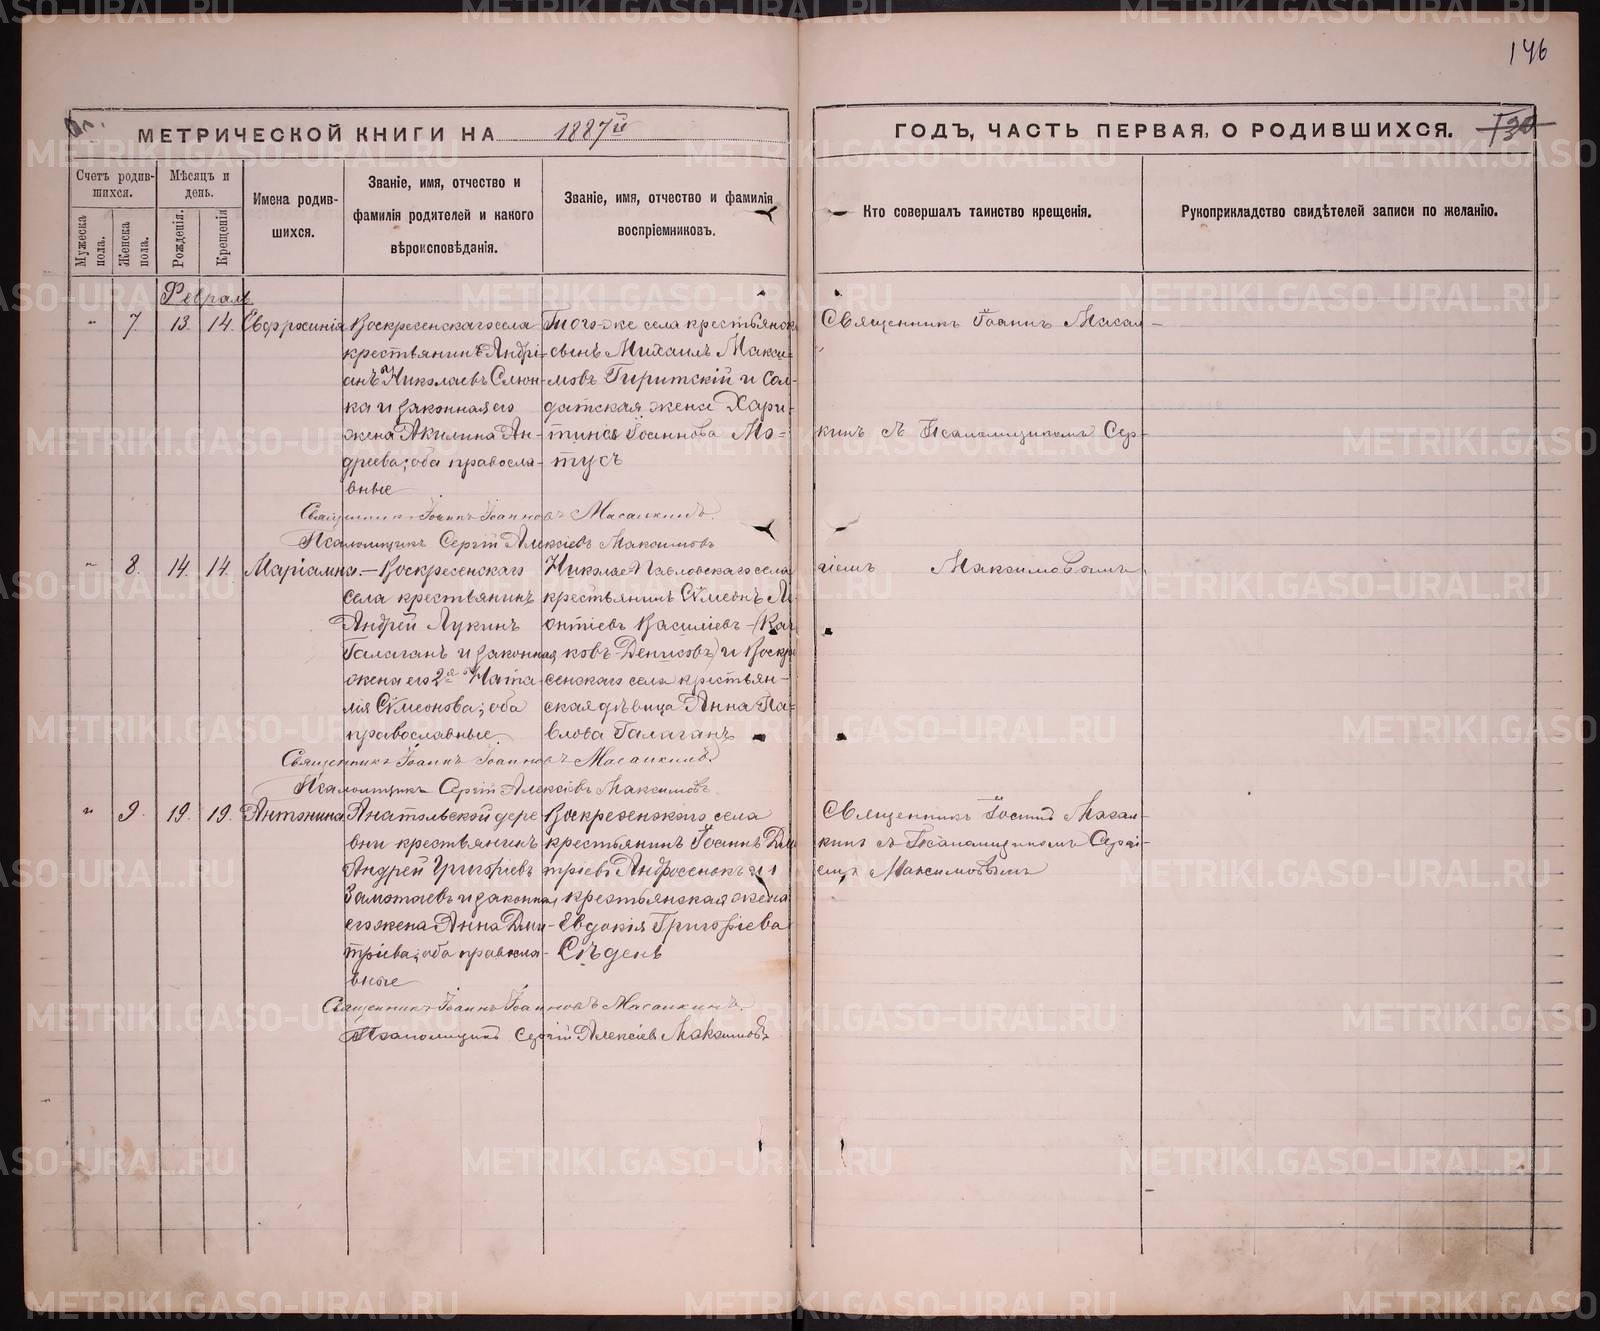 146
МЕТРИЧЕСКОЙ КНИГИ НА 1887й
ГОДЪ, ЧАСТЬ ПЕРВАЯ, О РОДИВШИХСЯ. 130
Счетъ родив-
шихся.
Мужеска пола.
Женска пола.
Мѣсяцъ и
день.
Рожденія.
Крещенія
Имена родив-
шихся.
Званіе, имя, отчество и
фамилія родителей и какого
вѣроисповѣданія.
Званіе, имя, отчество и фамилія
воспріемниковъ.
Кто совершалъ таинство крещенія.
Рукоприкладство свидѣтелей записи по желанію.
Февраль
" 7 13. 14. Евфросинія
Воскресенскаго села
крестьянинъ Андрі-
анъ Николаевъ
ка и законная его
жена Акилина Ан-
дреева; оба правосла-
вные
Того-же села крестьянск
сынъ Михаилъ Макси-
мовъ и Сол-
датская жена Хари-
тина Іоаннова Мо-
тусъ
Священникъ Іоаннъ Масал-
кинъ съ Псаломщикомъ Сер-
гіемъ Максимовымъ
Священникъ Іоаннъ Іоанновъ Масалкинъ.
Псаломщикъ Сергій Алексіевъ Максимовъ
" 8. 14. 14. Маріамна.
Воскресенскаго
села крестьянинъ
Андрей Лукинъ
Галаганъ и законная
жена его 2я Ната-
лія Сѵмеонова; оба
православные
Николае-Павловскаго села
крестьянинъ Сѵмеонъ Ле-
онтіевъ Василіевъ
ковъ Денисовъ) и Воскре
сенскаго села крестьян-
ская дѣвица Анна Па-
влова Галаганъ
Священникъ Іоаннъ Іоанновъ Масалкинъ.
Псаломщикъ Сергій Алексіевъ Максимовъ
" 9. 19. 19. Антонина
Анатольской дере
вни крестьянинъ
Андрей Григоріевъ
Замотаевъ и законная
его жена Анна Дми-
тріева; оба правосла-
вные
Воскресенскаго села
крестьянинъ Іоаннъ Дми
тріевъ Андросенокъ и
крестьянская жена
Евдокія Григоріева
Сѣдень
Священникъ Іоаннъ Масал-
кинъ съ Псаломщикомъ Сергі-
емъ Максимовымъ
Священникъ Іоаннъ Іоанновъ Масалкинъ.
Псаломщикъ Сергій Алексіевъ Максимовъ
METRIKI.GASO-URAL.RU